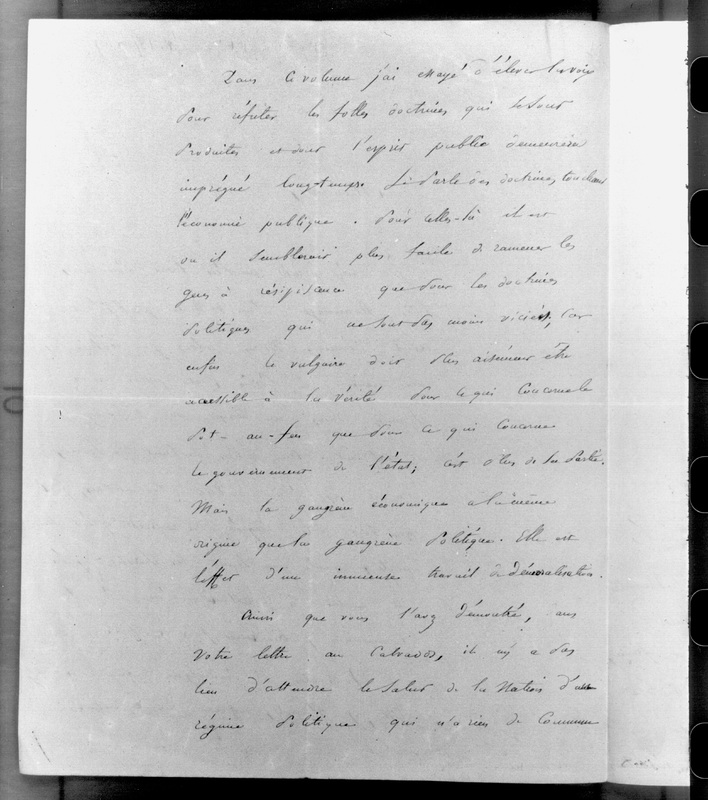 Dans ce volume j'ai essayé d'élever la voix
pour réfuter les folles doctrines qui se sont
produites et dont l'esprit public demeurera
imprégné long-temps. Je parle des doctrines touchant
l'économie publique. Pour celles-là il est
ou il semblerait plus facile de ramener les
gens à résipiscence que pour les doctrines
politiques qui ne sont pas moins viciées, car
enfin le vulgaire doit plus aisément être
accessible à la vérité pour ce qui concerne le
pot-au-feu que pour ce qui concerne
le gouvernement de l'état; c'est plus de sa portée.
Mais la gangrène économique a la même
origine que la gangrène politique. Elle est
l'effet d'une immense travail de démoralisation.
Ainsi que vous l'avez démontré, dans
votre lettre au Calvados, il n'y a pas
lieu d'attendre le salut de la nation d'un
régime politique qui n'a rien de commun